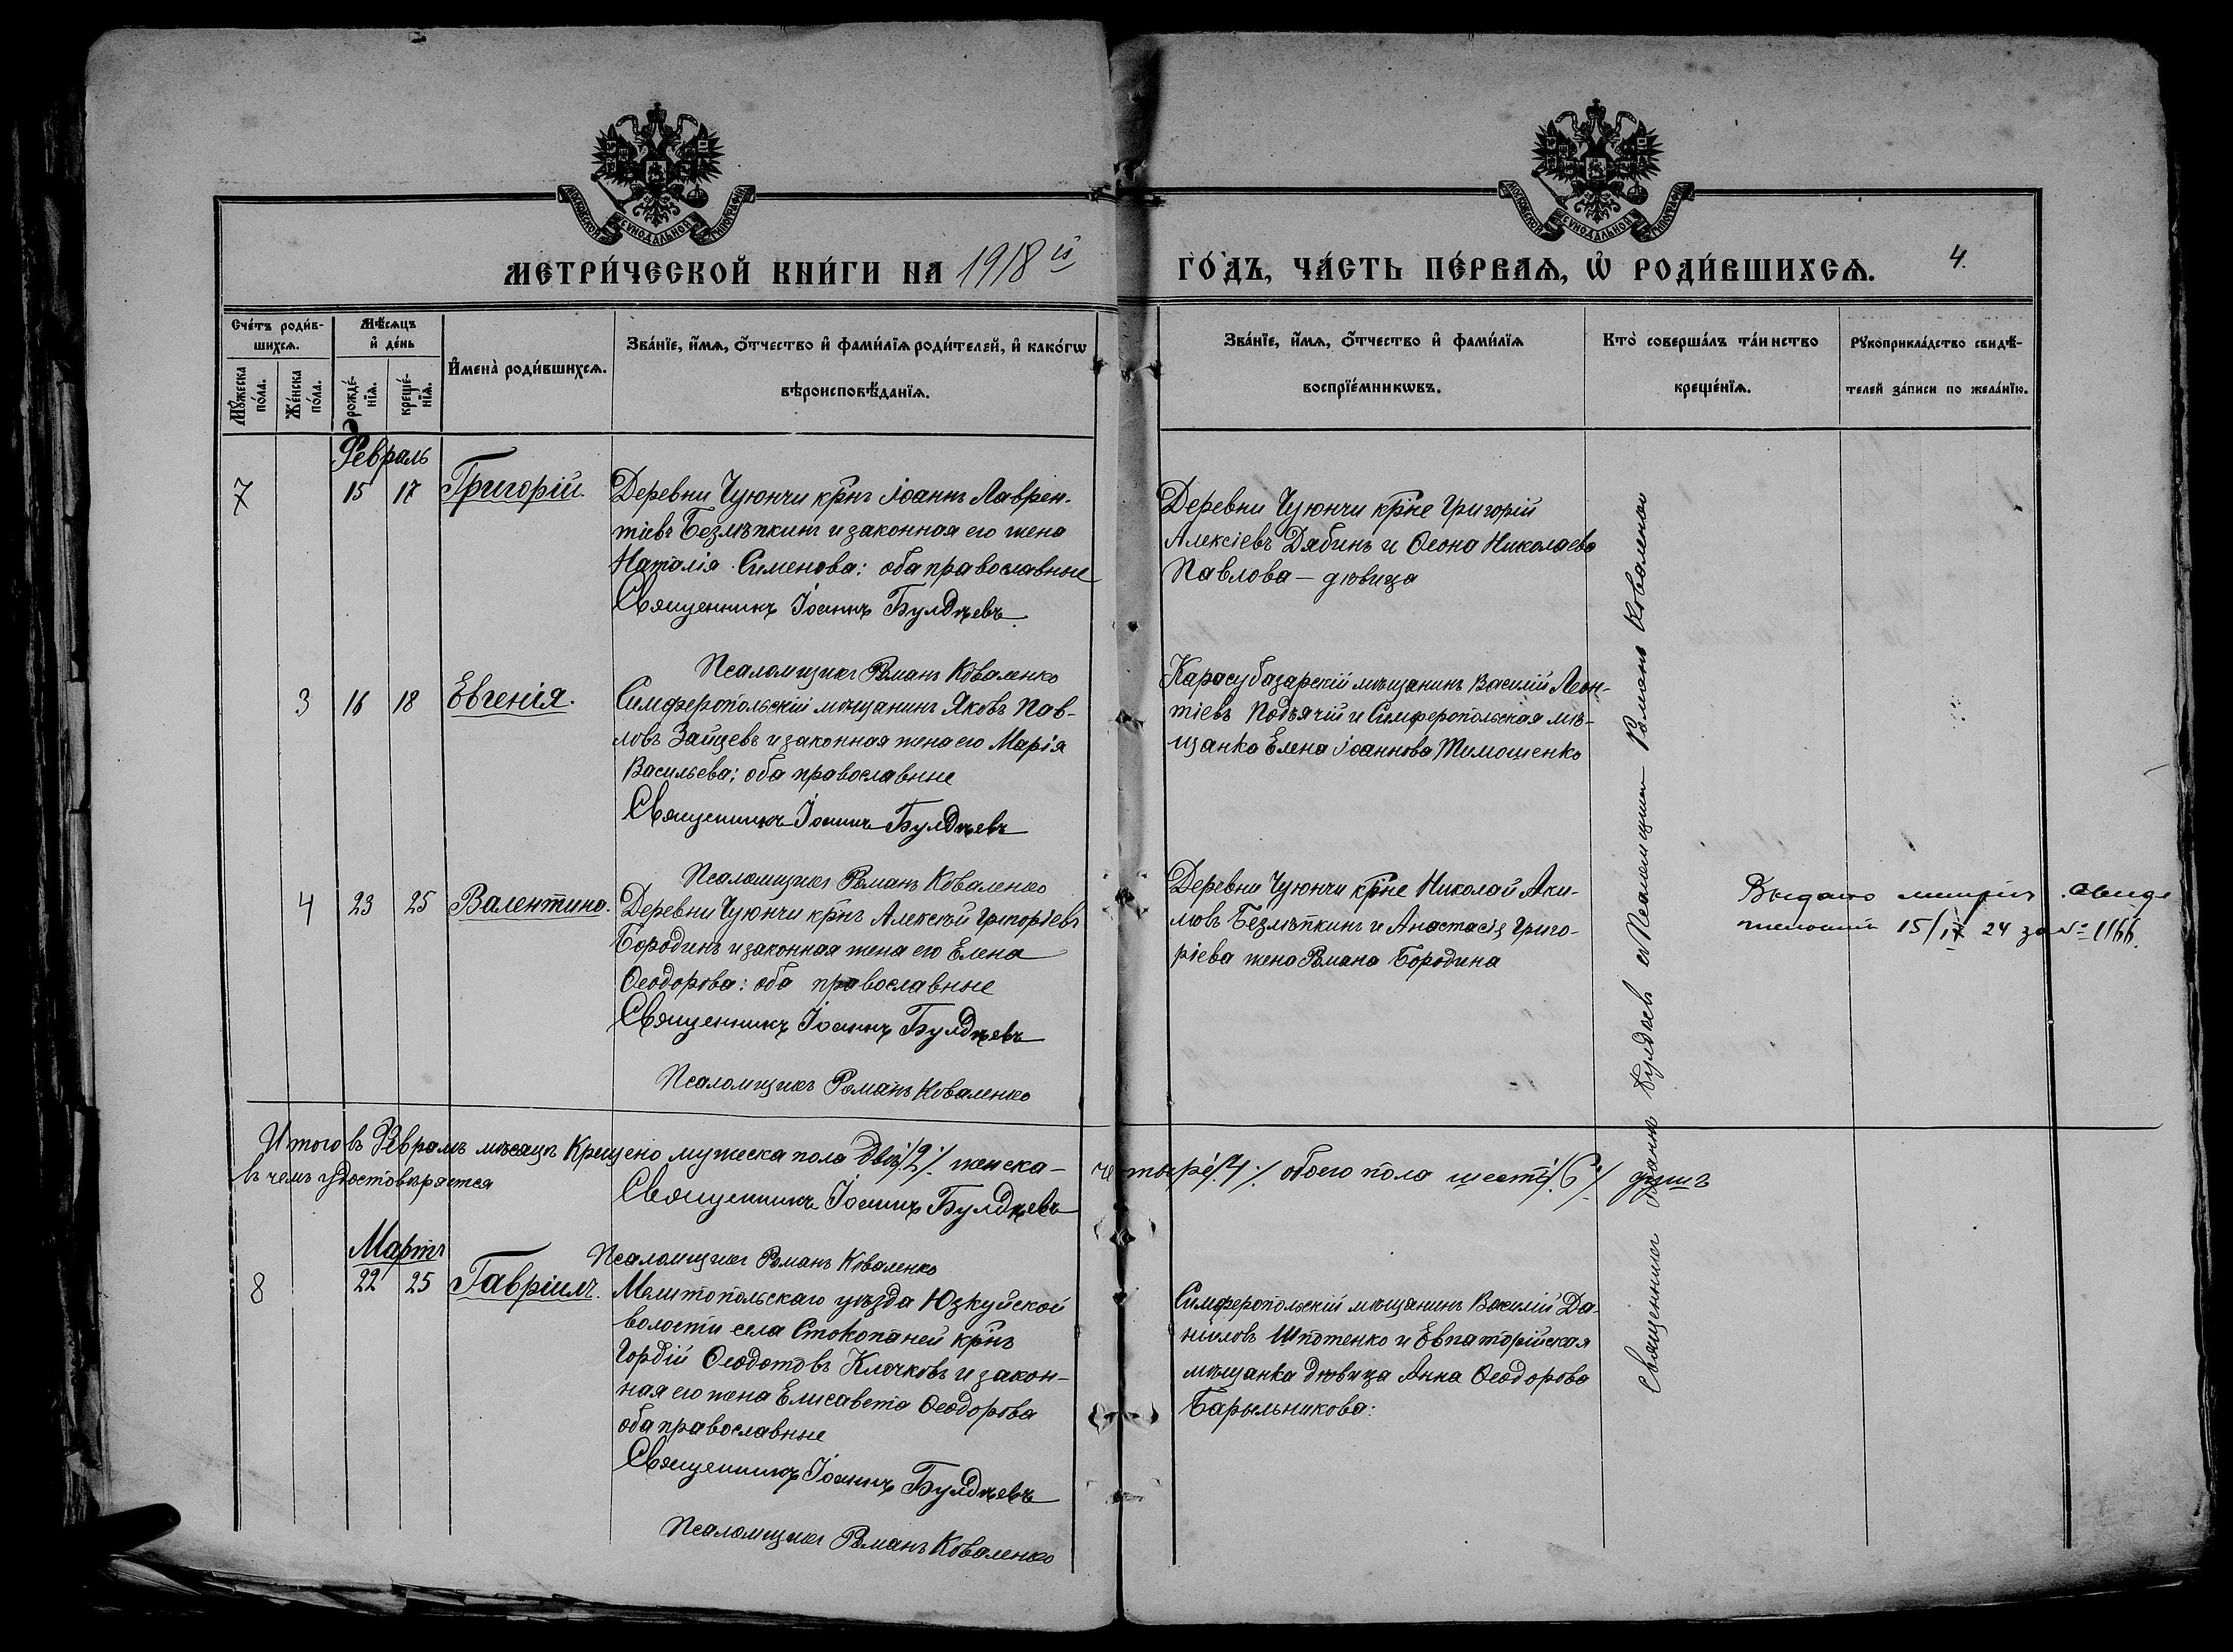 МОСКОВСКОЙ СУНОДАЛЬНОЙ ТИПОГРАФІИ
МОСКОВСКОЙ СУНОДАЛЬНОЙ ТИПОГРАФІИ
МЕТРИ́ЧЕСКОЙ КНИ́ГИ НА 1918 й
ГО́ДЪ, ЧА́СТЬ ПЕ́РВАѦ, Ѡ҆ РОДИ́ВШИХСѦ. 4.
Сче́тъ роди́в-
шихсѧ.
Мꙋ́жеска по́ла.
Же́нска по́ла.
Мѣ́сѧцъ и҆ де́нь
рожде́-нїѧ.
креще́-нїѧ.
И҆мена̀ роди́вшихсѧ.
Зва́нїе, и҆́мѧ, ѻ҆́тчество и҆ фами́лїѧ роди́телей, и҆ како́гѡ
вѣроисповѣ́данїѧ.
Зва́нїе, и҆́мѧ, ѻ҆́тчество и҆ фами́лїѧ
воспрїе́мникѡвъ.
Кто̀ соверша́лъ та́инство
креще́нїѧ.
Рꙋкоприкла́дство свидѣ́-
телей за́писи по жела́нїю.
Февраль
7 15 17 Григорій.
Деревни Чуюнчи крнъ Іоаннъ Лаврен-
тіевъ Безлѣпкинъ и законная его жена
Наталія Сименова: оба православные
Священникъ Іоаннъ Булдѣевъ.
Псаломщикъ Романъ Коваленко
Деревни Чуюнчи крне Григорій
Алексіевъ Дябинъ и Ѳеона Николаева
Павлова — дѣвица
3 16 18 Евгенія.
Симферопольскій мѣщанинъ Яковъ Пав-
ловъ Зайцевъ и законная жена его Марія
Васильева; оба православные
Священникъ Іоаннъ Булдѣевъ
Псаломщикъ Романъ Коваленко
Карасубазарскій мѣщанинъ Василій Леон-
тіевъ Подъячій и Симферопольская мѣ-
щанка Елена Іоаннова Тимошенко
4 23 25 Валентина.
Деревни Чуюнчи крнъ Алексѣй Григоріевъ
Бородинъ и законная жена его Елена
Ѳеодорова: оба православные
Священникъ Іоаннъ Булдѣевъ
Псаломщикъ Романъ Коваленко
Деревни Чуюнчи крне Николай Аки-
мовъ Безлѣпкинъ и Анастасія Григо-
ріева жена Романа Бородина
Выдано метрич. свиде
15/IX 24 за № 1166.
Итого въ Февралѣ мѣсяцѣ Крещено мужеска пола два /2/. женска —
четыре /4/. обоего пола шесть /6/ душъ
въ чемъ удостовѣряется
Священникъ Іоаннъ Булдѣевъ
Псаломщикъ Романъ Коваленко
Мартъ
8 22 25 Гавріилъ.
Мелитопольскаго уѣзда Юзкуйской
волости села Стокопаней крнъ
Гордій Ѳеодотовъ Клочковъ и закон-
ная его жена Елисавета Ѳеодорова
оба православные
Священникъ Іоаннъ Булдѣевъ
Псаломщикъ Романъ Коваленко
Симферопольскій мѣщанинъ Василій Да-
ніиловъ Шпотенко и Евпаторійская
мѣщанка дѣвица Анна Ѳеодорова
Барыльникова:
Священникъ Іоаннъ Булдѣевъ съ Псаломщикомъ Романъ Коваленко